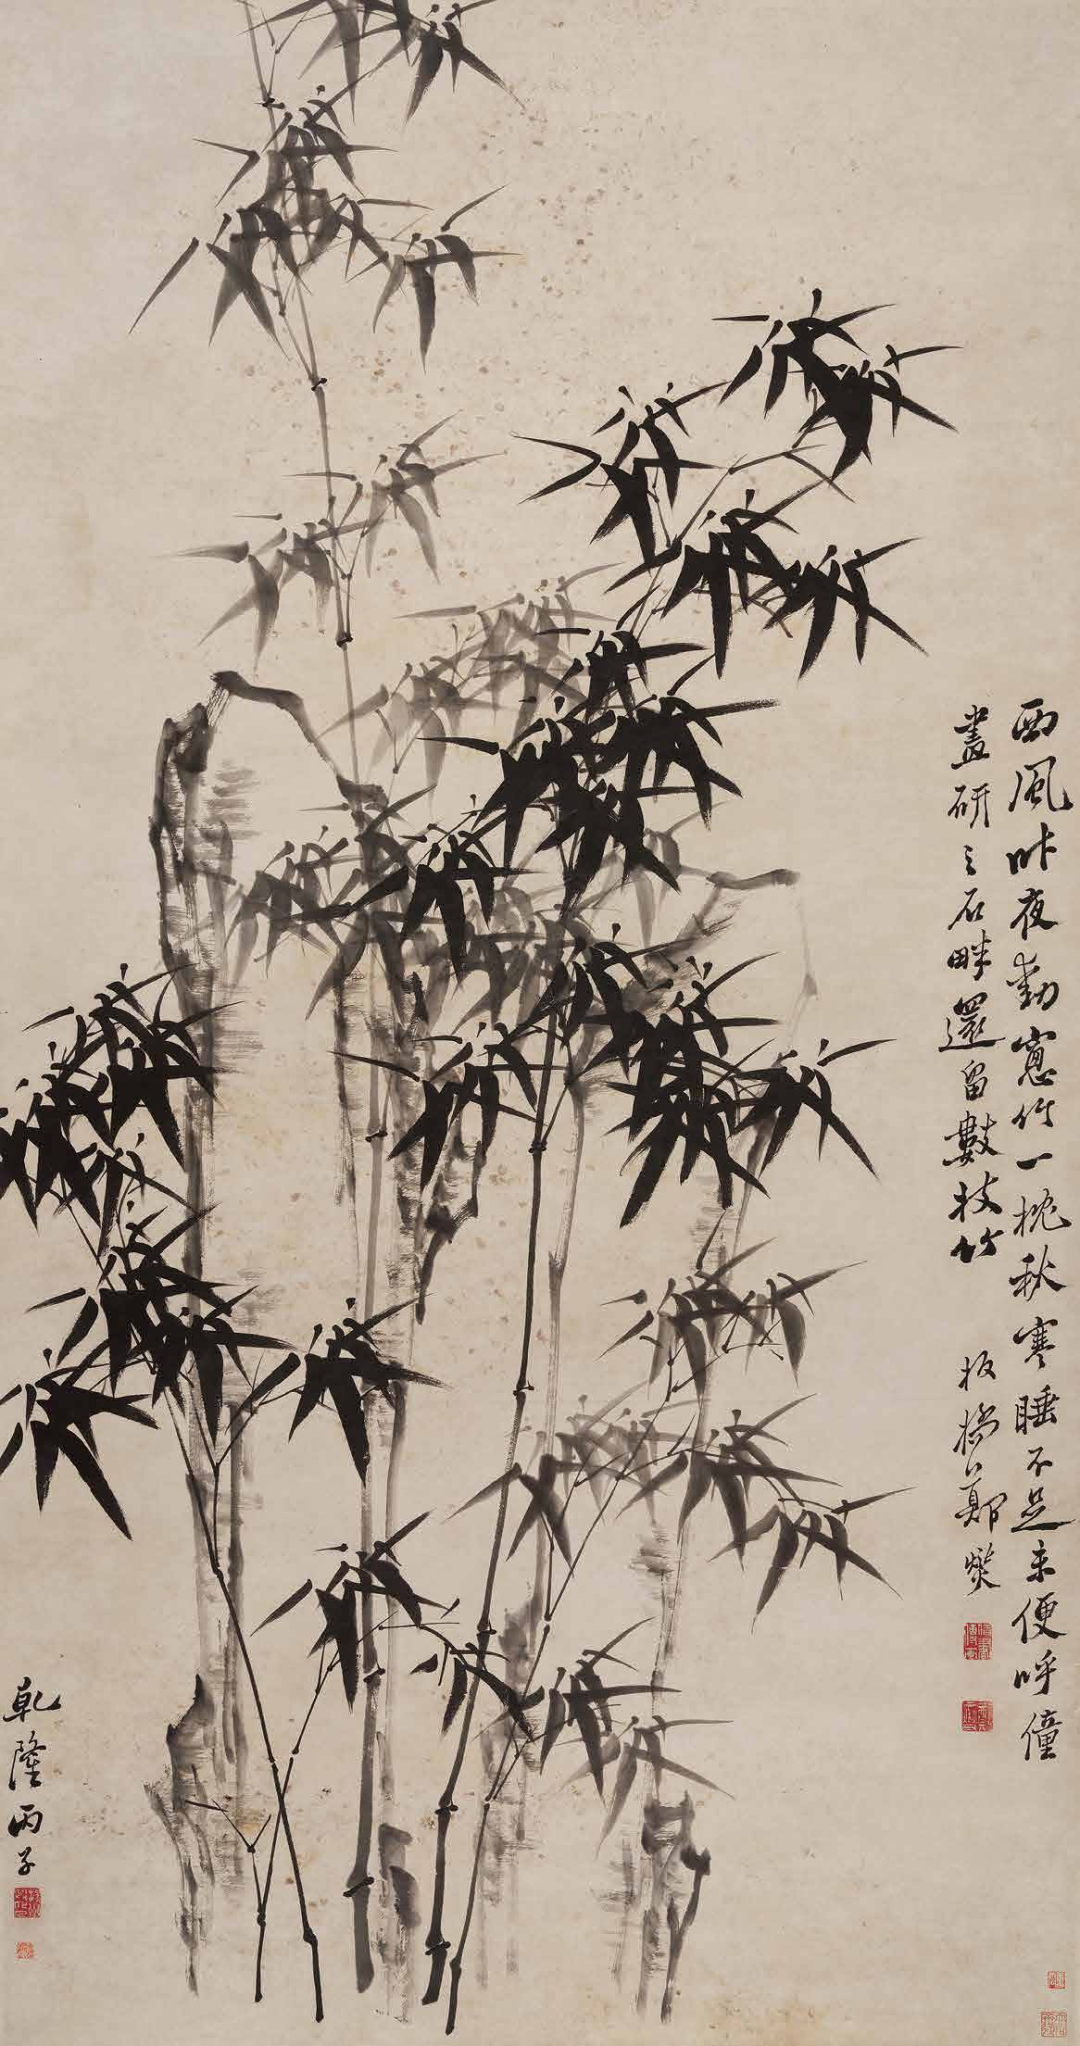 西風昨夜動窻竹一枕秋寒睡不足未便呼僮
盡研之石畔還留數枝竹
板橋鄭燮
乾隆丙子